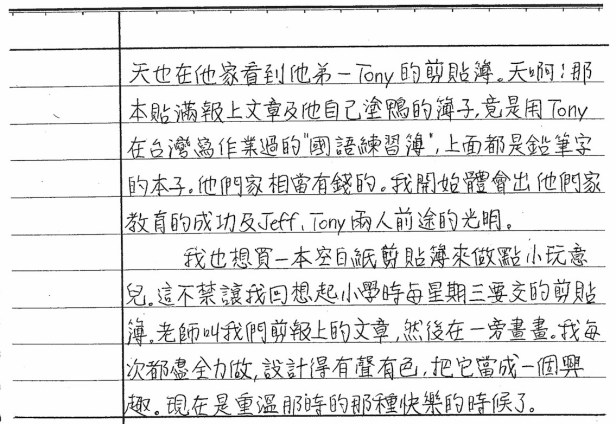 天也在他家看到他弟－Tony的剪貼簿。天啊！那
本貼滿報上文章及他自己塗鴨的簿子,竟是用Tony
在台灣寫作業過的"國語練習簿",上面都是鉛筆字
的本子。他們家相當有錢的。我開始體會出他們家
教育的成功及Jeff、Tony兩人前途的光明。
我也想買一本空白紙剪貼簿來做點小玩意
兒。這不禁讓我回想起小學時每星期三要交的剪貼
簿。老師叫我們剪報上的文章,然後在一旁畫畫。我每
次都盡全力做,設計得有聲有色,把它當成一個興
趣。現在是重溫那時的那種快樂的時候了。